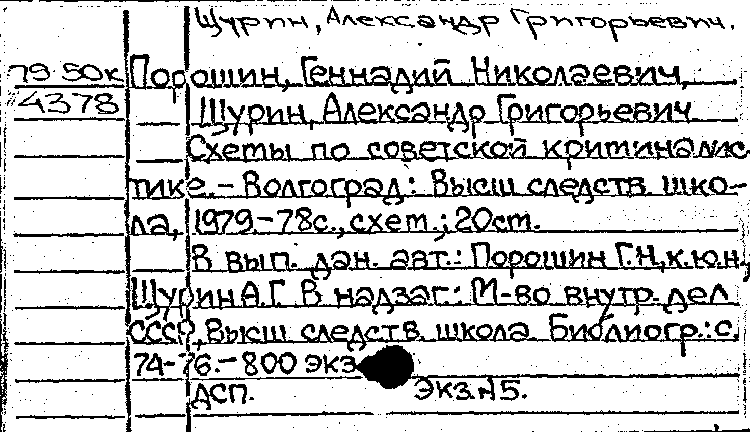 Щурин, Александр Григорьевич.
79·50к Порошин, Геннадий Николаевич,
4378 Щурин, Александр Григорьевич
Схемы по советской криминалис-
тике. – Волгоград: Высш следств. шко-
ла, 1979. – 78с., схем.; 20см.
В вып. дан. авт.: Порошин Г.Н., к.ю.н.,
Щурин А.Г. В надзаг.: М-во внутр. дел
СССР, Высш следств. школа. Библиогр.: с.
74-76. – 800 экз
ДСП. Экз.№5.